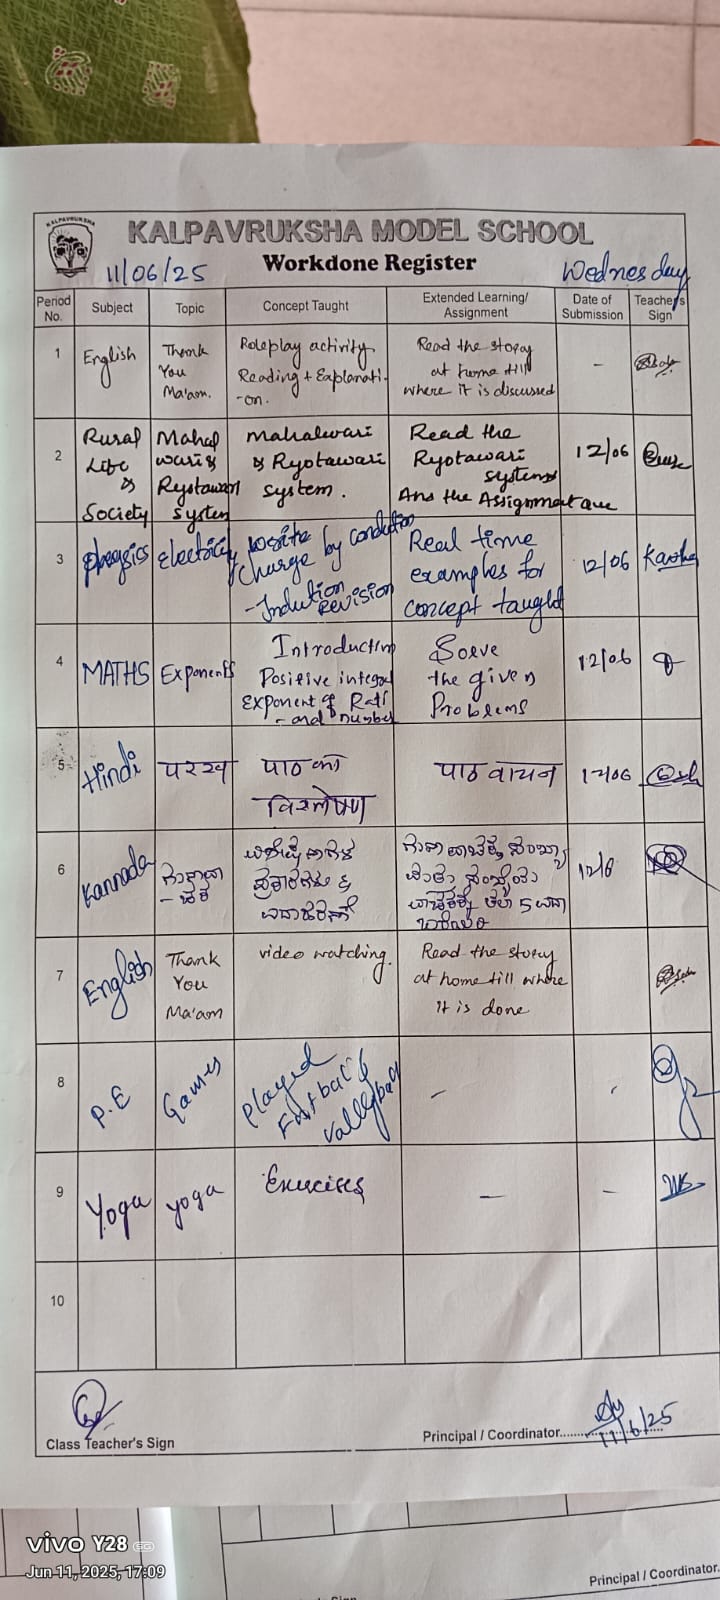 KALPAVRUKSHA
KALPAVRUKSHA MODEL SCHOOL
11/06/25 Workdone Register Wednesday
Period No. Subject Topic Concept Taught Extended Learning/ Assignment Date of Submission Teacher's Sign
1 English Thank You Ma'am.
Roleplay activity
Reading + Explanati-
-on.
Read the story
at home till
where it is discussed
-
2 Rural Life & Society
Mahalwari & Ryotawari system
mahalwari
& Ryotawari
system.
Read the
Ryotawari
system
And the Assignment
12/06
3 physics Electricity
Charge by conduction
- Indution
REVISION
Real time
examples for
concept taught
12/06
4 MATHS Exponents
Introduction
Positive integral
Exponent of Rati
-onal number
Solve
the given
Problems
12/06
5 Hindi परख
पाठ का
विश्लेषण
पाठ वाचन
12/06
6 Kannada
12/6
7 English Thank
You
Ma'am
video watching.
Read the story
at home till where
it is done
8 P.E Games
Played
Football &
Valleyball
-
9 Yoga yoga
Exercises
-
-
10
Class Teacher's Sign
Principal / Coordinator
11/6/25
vivo Y28 5G
Jun 11, 2025, 17:09
Principal / Coordinator